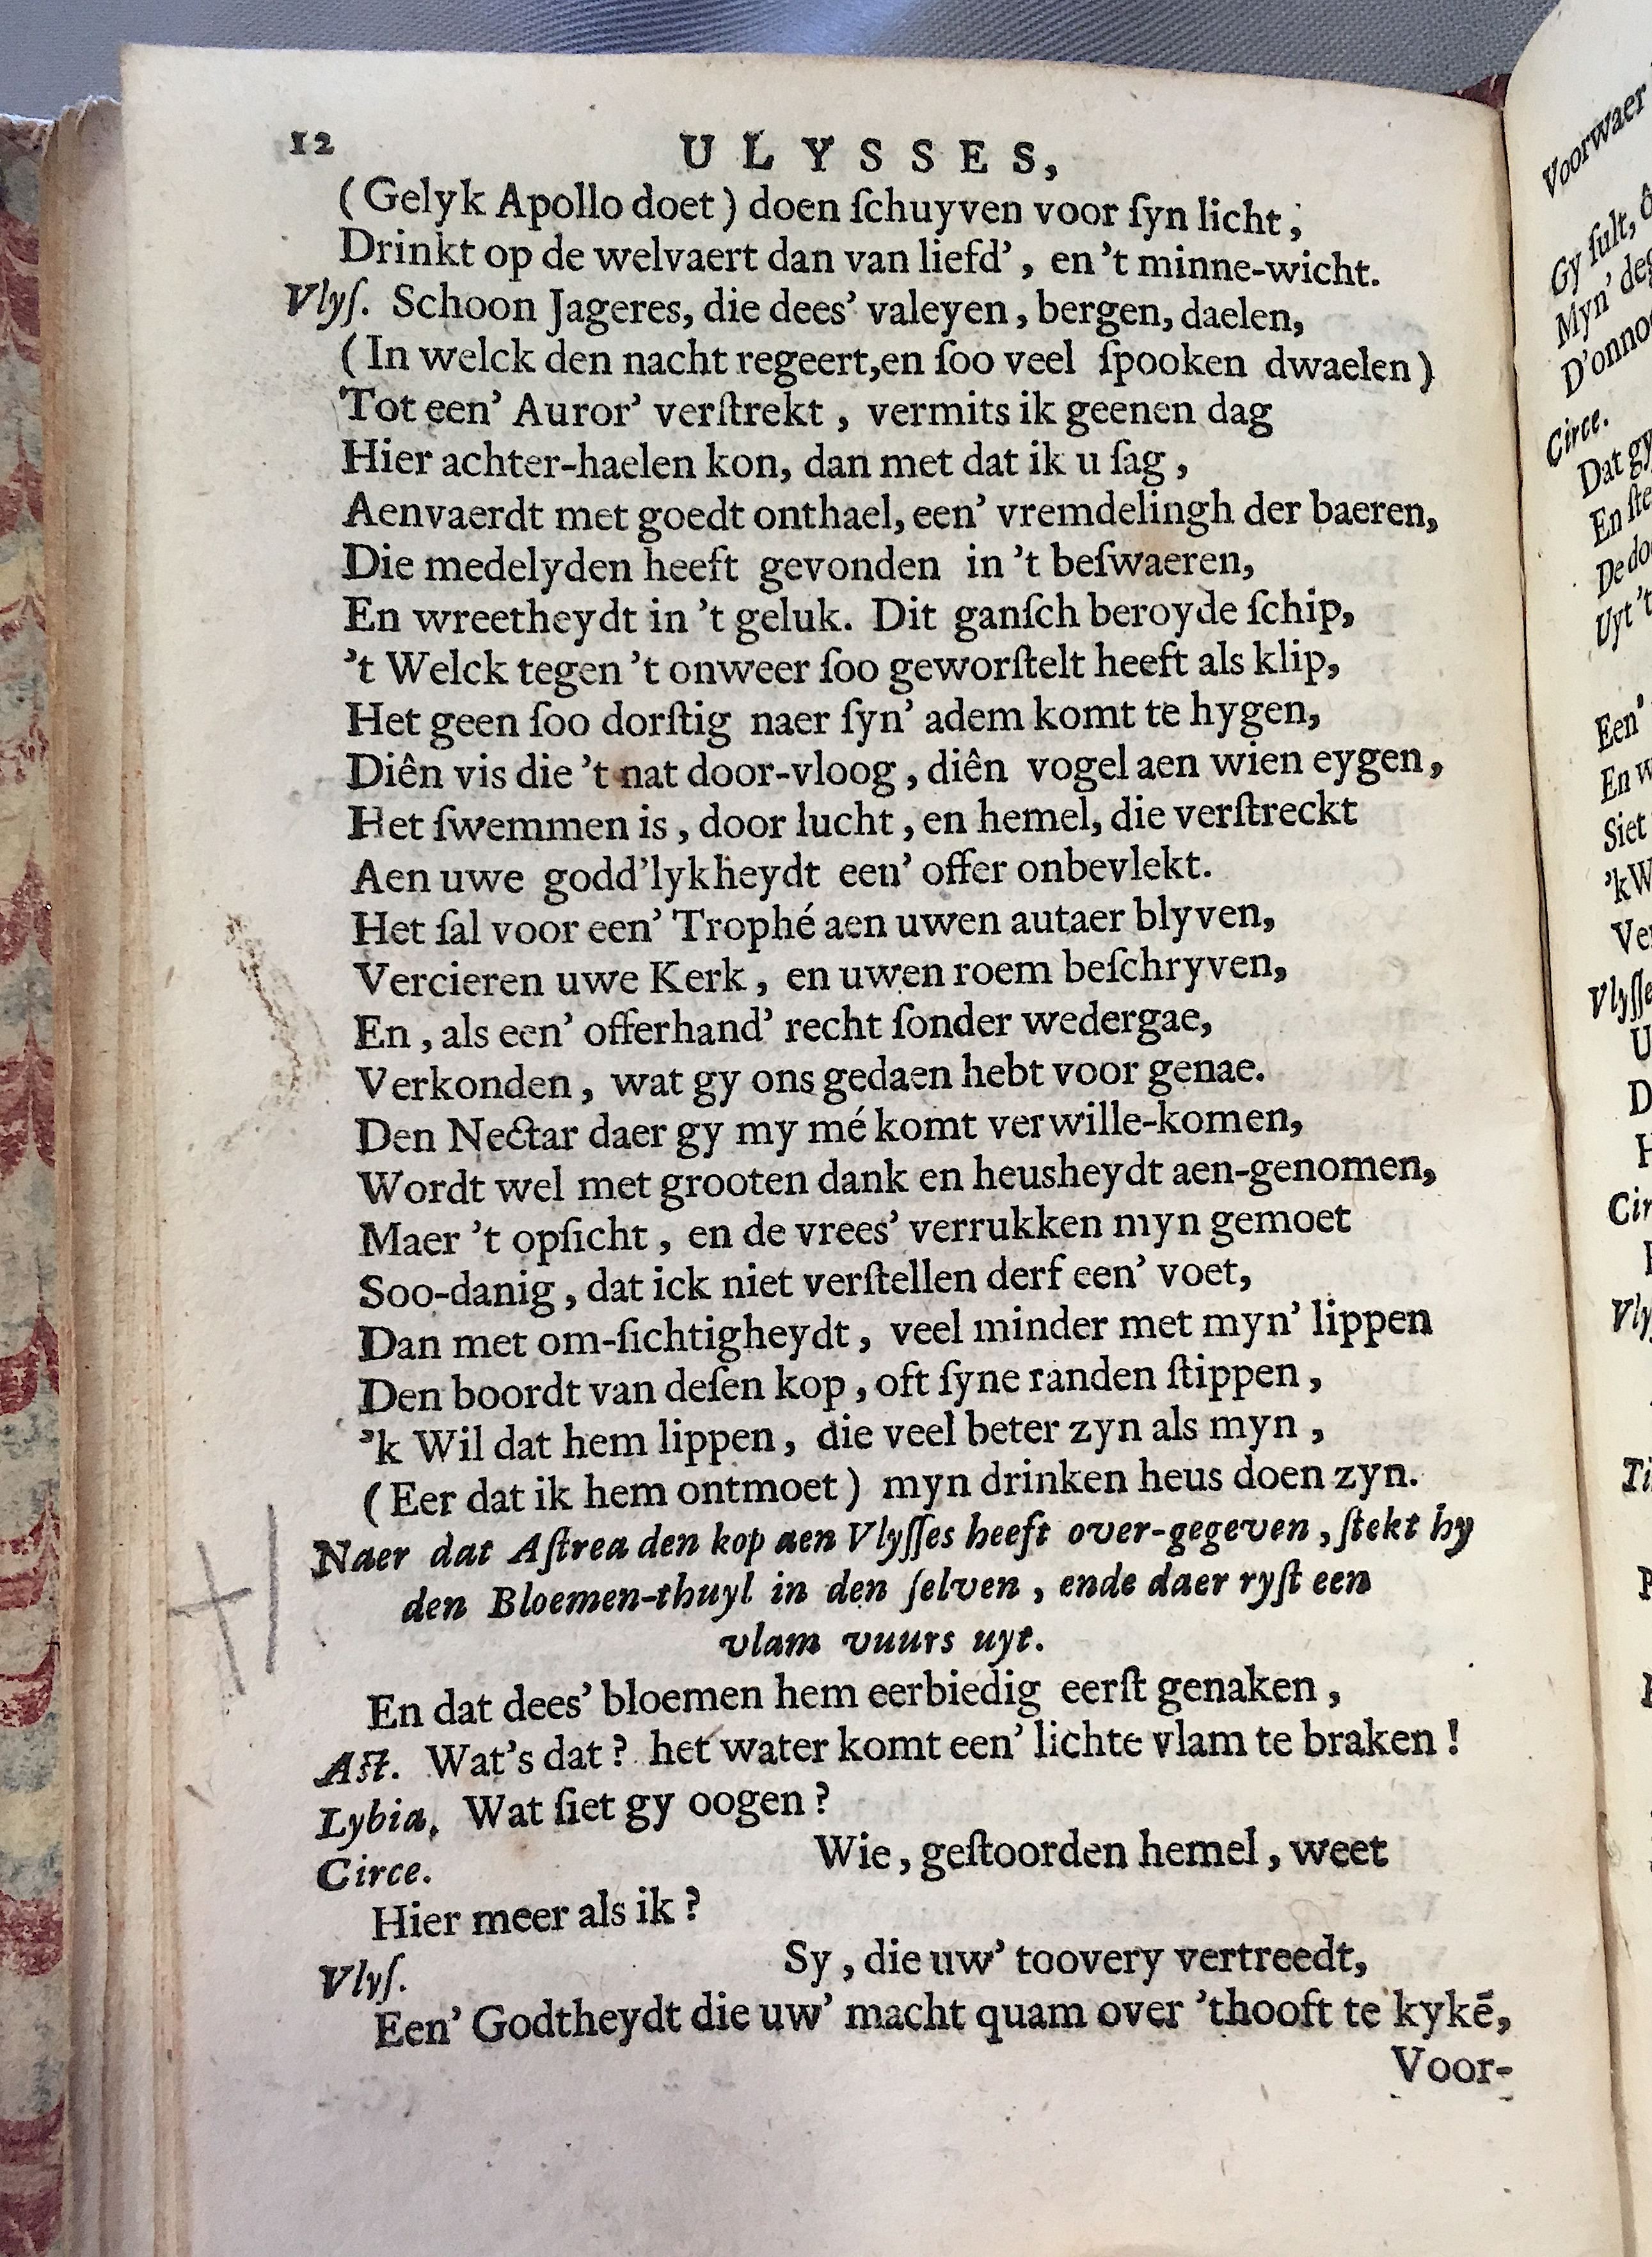 12 ULYSSES,
(Gelyk Apollo doet) doen ſchuyven voor ſyn licht;
Drinkt op de welvaert dan van liefd', en 't minne-wicht.
Vlyſ. Schoon Jageres, die dees' valeyen, bergen, daelen,
(In welck den nacht regeert, en ſoo veel ſpooken dwaelen)
Tot een' Auror' verſtrekt, vermits ik geenen dag
Hier achter-haelen kon, dan met dat ik u ſag,
Aenvaerdt met goedt onthael, een' vremdelingh der baeren,
Die medelyden heeft gevonden in 't beſwaeren,
En wreetheydt in 't geluk. Dit ganſch beroyde ſchip,
't Welck tegen 't onweer ſoo geworſtelt heeft als klip,
Het geen ſoo dorſtig naer ſyn' adem komt te hygen,
Diên vis die 't nat door-vloog, diên vogel aen wien eygen,
Het ſwemmen is, door lucht, en hemel, die verſtreckt
Aen uwe godd'lykheydt een' offer onbevlekt.
Het ſal voor een' Trophé aen uwen autaer blyven,
Vercieren uwe Kerk, en uwen roem beſchryven,
En, als een' offerhand' recht ſonder wedergae,
Verkonden, wat gy ons gedaen hebt voor genae.
Den Nectar daer gy my mé komt verwille-komen,
Wordt wel met grooten dank en heusheydt aen-genomen,
Maer 't opſicht, en de vrees' verrukken myn gemoet
Soo-danig, dat ick niet verſtellen derf een' voet,
Dan met om-ſichtigheydt, veel minder met myn' lippen
Den boordt van deſen kop, oft ſyne randen ſtippen,
'k Wil dat hem lippen, die veel beter zyn als myn,
(Eer dat ik hem ontmoet) myn drinken heus doen zyn.
Naer dat Aſtrea den kop aen Vlyſſes heeft over-gegeven, ſtekt hy
den Bloemen-thuyl in den ſelven, ende daer ryſt een
vlam vuurs uyt.
En dat dees' bloemen hem eerbiedig eerſt genaken,
Aſt. Wat's dat? het water komt een' lichte vlam te braken!
Lybia. Wat ſiet gy oogen?
Circe. Wie, geſtoorden hemel, weet
Hier meer als ik?
Vlyſ. Sy, die uw' toovery vertreedt,
Een' Godtheydt die uw' macht quam over 'thooft te kykē,
Voor-
Voorwaer
Gy ſult, ô
Myn'
Circe.
Dat gy
En
Uyt 't
Een'
En
Siet
'k
U
D